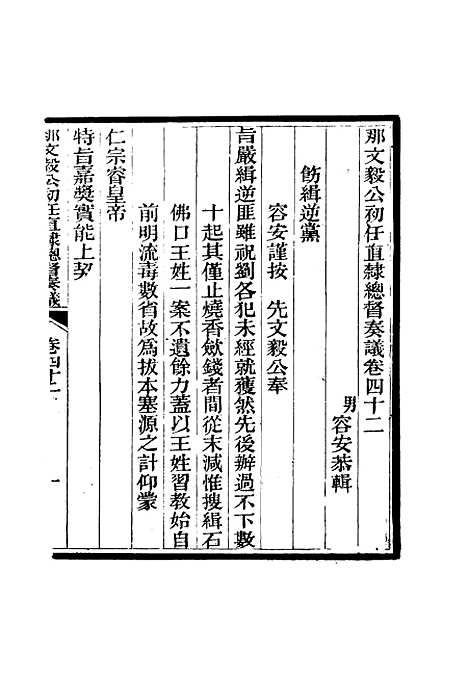 那文毅公初任直隸總督奏議卷四十二
男容安恭輯
飭緝逆黨
容安謹按　先文毅公奉
旨嚴緝逆匪雖祝劉各犯未經就獲然先後辦過不下數
十起其僅止燒香斂錢者間從末減惟搜緝石
佛口王姓一案不遺餘力蓋以王姓習教始自
前明流毒數省故為拔本塞源之計仰蒙
仁宗睿皇帝
特旨嘉獎實能上契
那文毅公初任直隸總督奏議　卷四十二　一